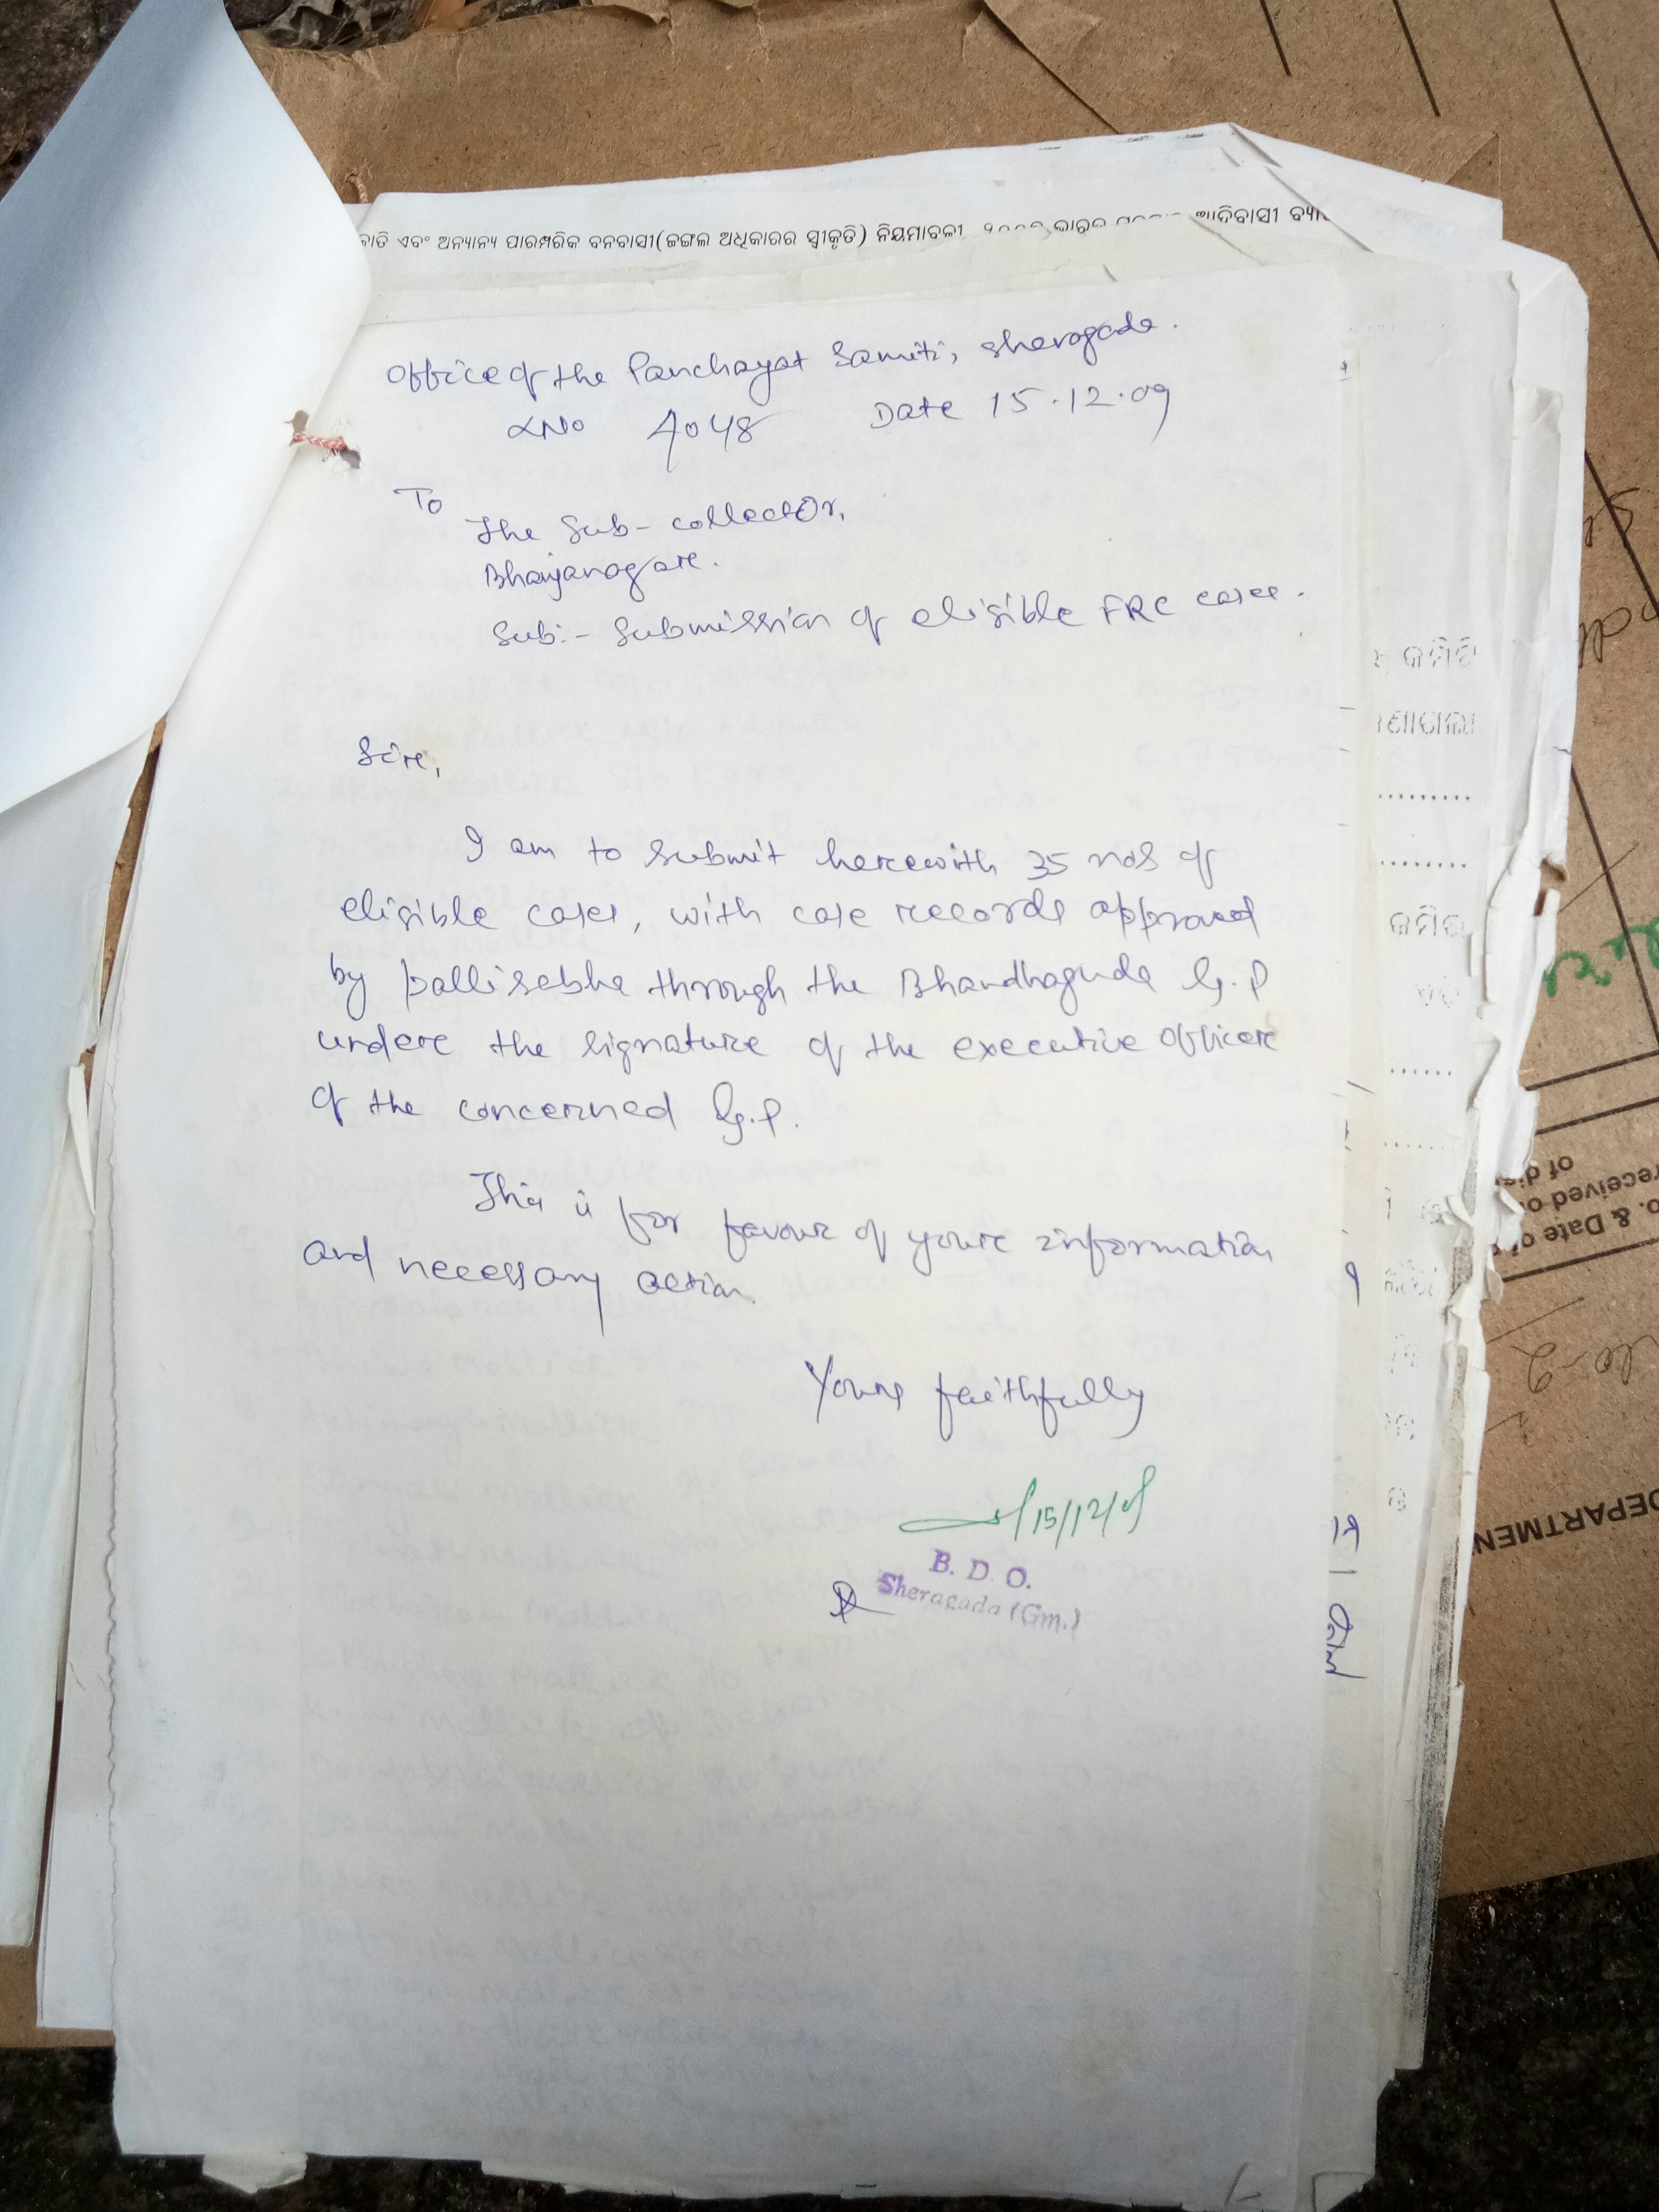 ଏବଂ ଅନ୍ୟାନ୍ୟ ପାରମ୍ପରିକ ବନବାସୀ(ଜଙ୍ଗଲ ଅଧିକାରର ସ୍ୱୀକୃତି) ନିୟମାବଳୀ ଆଦିବାସୀ
Office of the Panchayat Samiti, Sheragada.
LNo 4048 Date 15.12.09
To
The Sub-collector,
Bhanjanagare.
Sub:- Submission of eligible FRC cases.
Sire,
I am to submit herewith 35 nos of
eligible cases, with case records approved
by pallisabha through the Bhandhaguda G.P
undere the signature of the executive officere
of the concerned G.P.
This is for favour of youre information
and necessary action.
Yours faithfully
15/12/09
B. D. O.
Sheragada (Gm.)
କମିଟି
DEPARTMEN
& Date of
received o
of dis